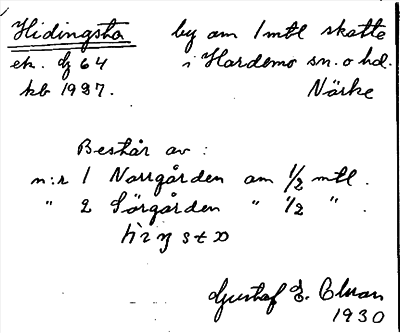 Hidingsta by om 1 mtl skatte
ek. bl 64 i Hardemo sn. o hd.
kb 1937. Närke
Består av :
n:r 1 Norrgården om 1/2 mtl.
" 2 Sörgården " 1/2 " .
Gustaf E.
1930